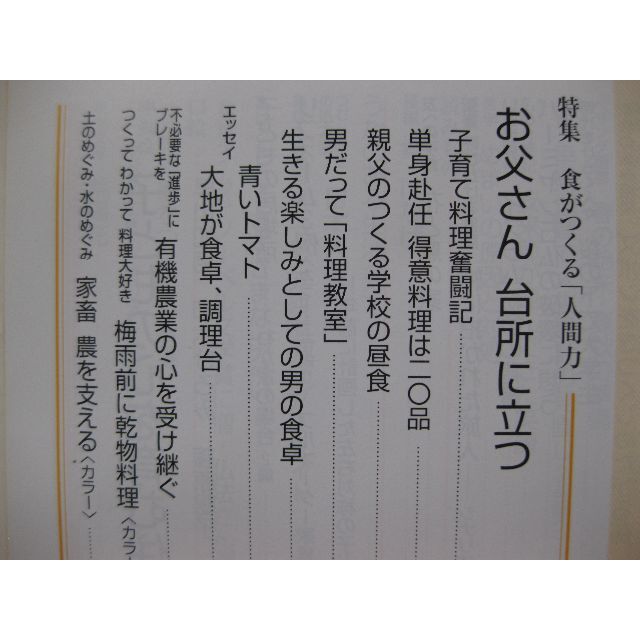 特集 食がつくる「人間力」
お父さん 台所に立つ
子育て料理奮闘記
単身赴任 得意料理は二〇品
親父のつくる学校の昼食
男だって「料理教室」
生きる楽しみとしての男の食卓
エッセイ
青いトマト
大地が食卓、調理台
不必要な「進歩」に
ブレーキを
有機農業の心を受け継ぐ
つくって わかって 料理大好き
梅雨前に乾物料理〈カラ
土のめぐみ・水のめぐみ
家畜 農を支える〈カラー〉